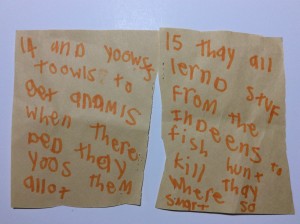 14 and yoows
toowls to
get anamls
when there
ded thay
yoos them
allot
15 thay all
lernd stuf
from the
Indeens to
fish hunt
kill thay
where so
smart